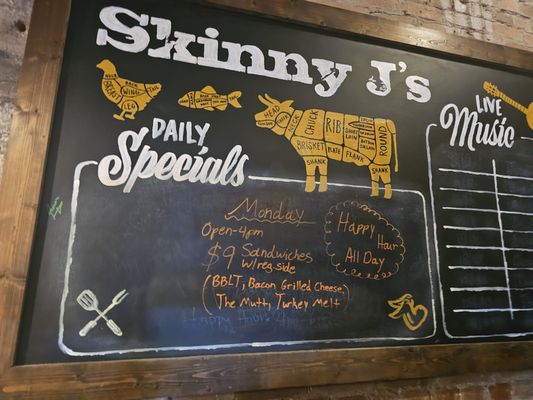 Skinny J's
DAILY
Specials
LIVE
Music
HEAD
NECK
CHUCK
RIB
ROUND
BRISKET
PLATE
FLANK
SHANK
SHANK
BREAST
BACK
WING
LEG
TAIL
Monday
Open-4pm
$9 Sandwiches
w/reg. side
(BBLT, Bacon Grilled Cheese,
The Mutt, Turkey Melt)
Happy
Hour
All Day